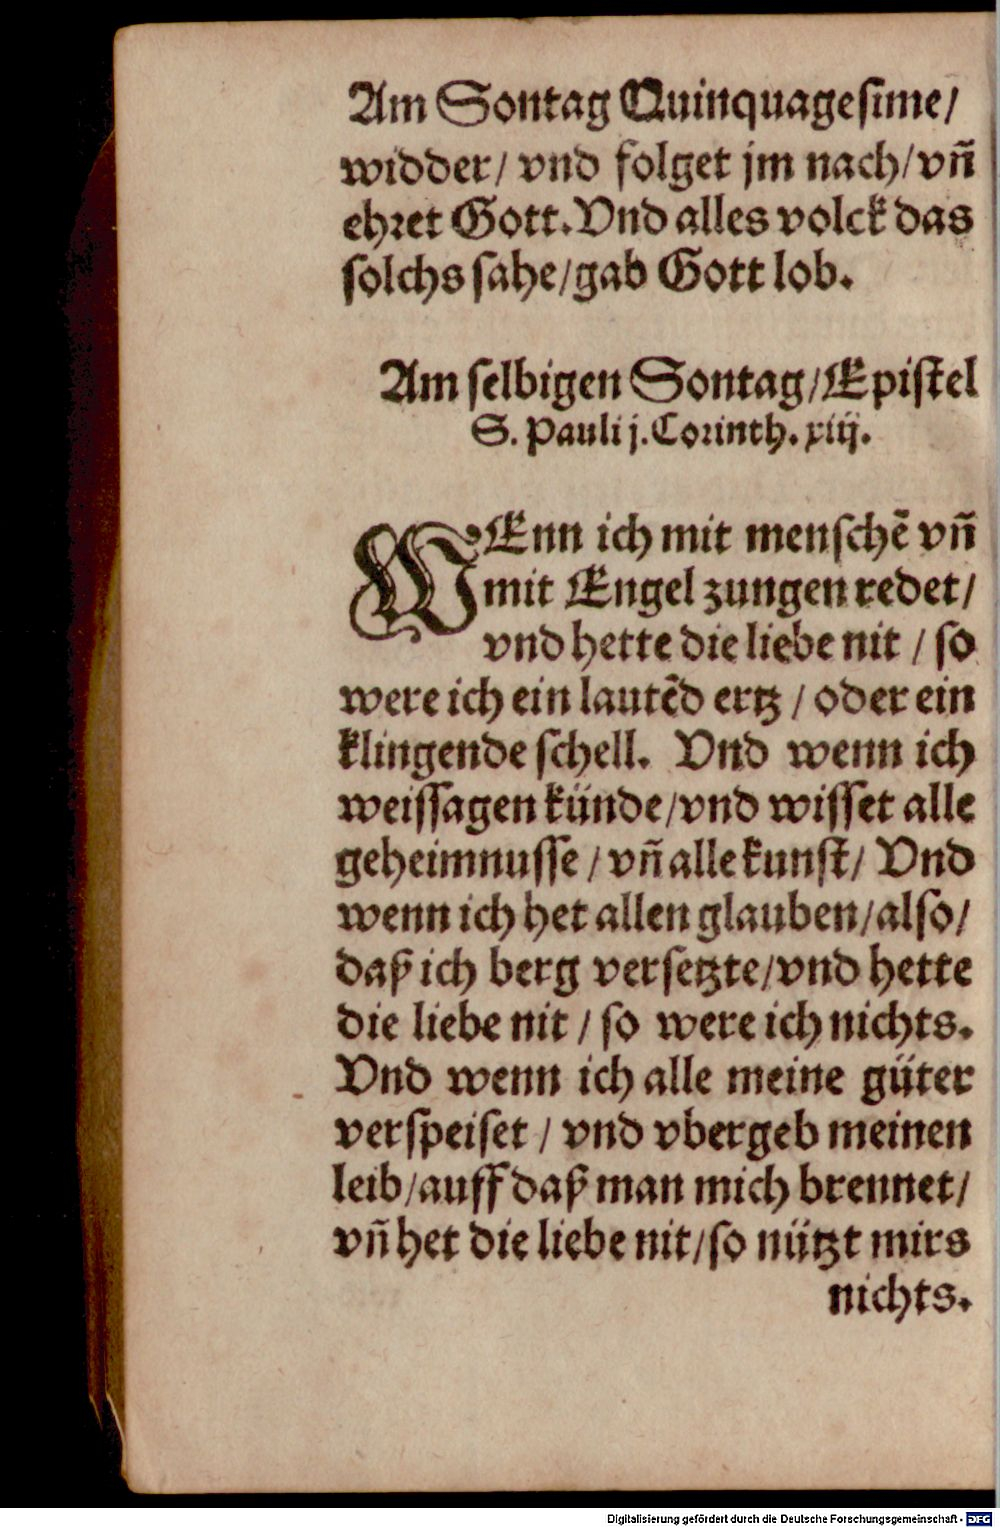 Am Sontag Quinquagesime/
widder/ vnd folget jm nach/ vñ
ehret Gott. Vnd alles volck das
solchs sahe/ gab Gott lob.
Am selbigen Sontag/ Epistel
S. Pauli j. Corinth. xiij.
WEnn ich mit menschẽ vñ
mit Engel zungen redet/
vnd hette die liebe nit / so
were ich ein lautẽd ertz / oder ein
klingende schell. Vnd wenn ich
weissagen künde/ vnd wisset alle
geheimnusse / vñ alle kunst/ Vnd
wenn ich het allen glauben/ also/
daß ich berg versetzte/ vnd hette
die liebe nit / so were ich nichts.
Vnd wenn ich alle meine güter
verspeiset / vnd vbergeb meinen
leib/ auff daß man mich brennet/
vñ het die liebe nit/ so nützt mirs
nichts.
Digitalisierung gefördert durch die Deutsche Forschungsgemeinschaft - DFG